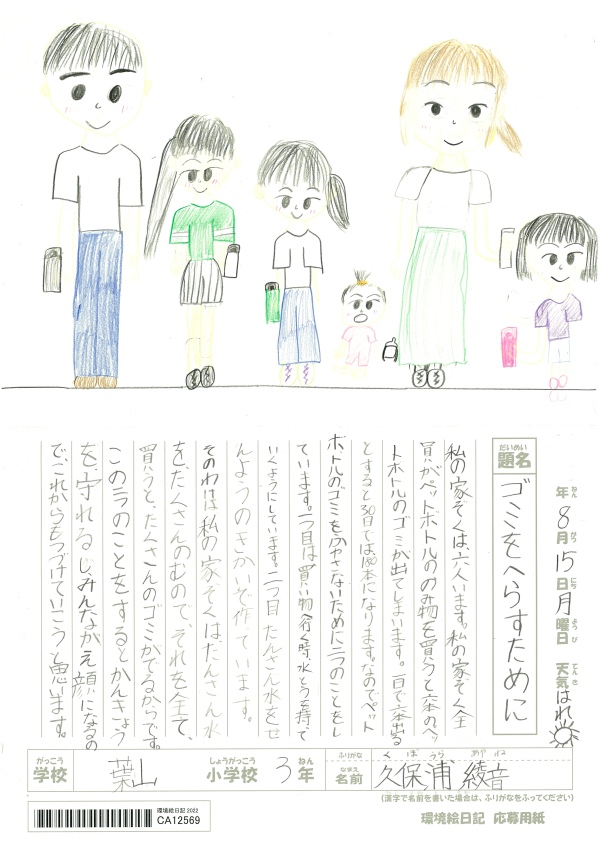 年8月15日月曜日 天気はれ
ねん がつ にち ようび てんき
だいめい
題名 ゴミをへらすために
私の家ぞくは、六人います。私の家ぞく全
員がペットボトルののみ物を買うと六本のペッ
トボトルのゴミが出てしまいます。一日で六本出る
とすると30日では180本になります。なのでペット
ボトルのゴミをふやさないために二つのことをし
ています。一つ目は買い物へ行く時、水とうを持って
いくようにしています。二つ目たんさん水をせ
んようのきかいで作っています。
そのわけは、私の家ぞくはたんさん水
を、たくさんのむので、それを全て、
買うと、たくさんのゴミがでるからです。
この二つのことをするとかんきょう
を、守れるし、みんながえ顔になるの
で、これからもつづけていこうと思います。
がっこう しょうがっこう ねん ふりがな くぼうら あやね
学校 葉山 小学校 3年 なまえ 名前 久保浦 綾音
(漢字で名前を書いた場合は、ふりがなをふってください)
環境絵日記 2022
CA12569
環境絵日記 応募用紙